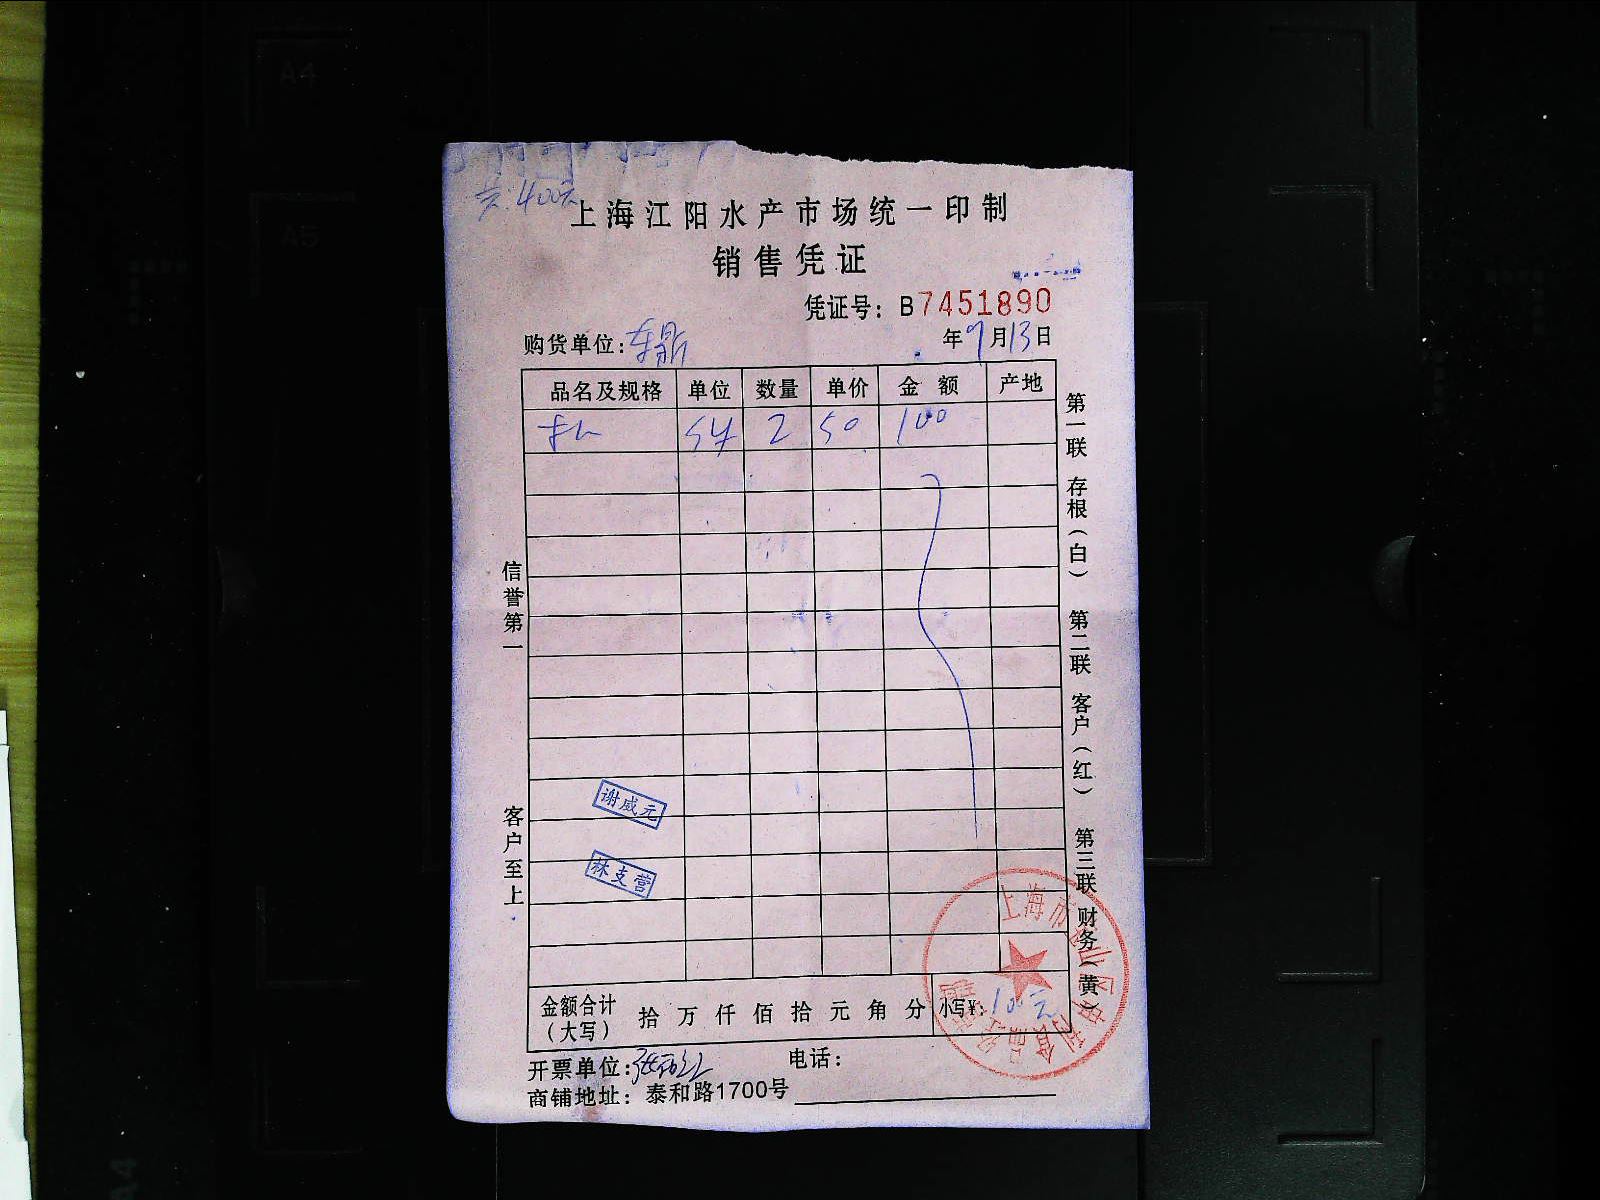 共:400元
上海江阳水产市场统一印制
销售凭证
凭证号：B7451890
购货单位:东鼎 年9月13日
品名及规格 单位 数量 单价 金额 产地
2 50 100
第一联 存根（白） 第二联 客户（红） 第三联 财务（黄）
信誉第一 客户至上
谢威元
林支营
金额合计（大写） 拾 万 仟 佰 拾 元 角 分 小写¥:100元
上海市
开票单位: 电话：
商铺地址：泰和路1700号
A4
A5
A4